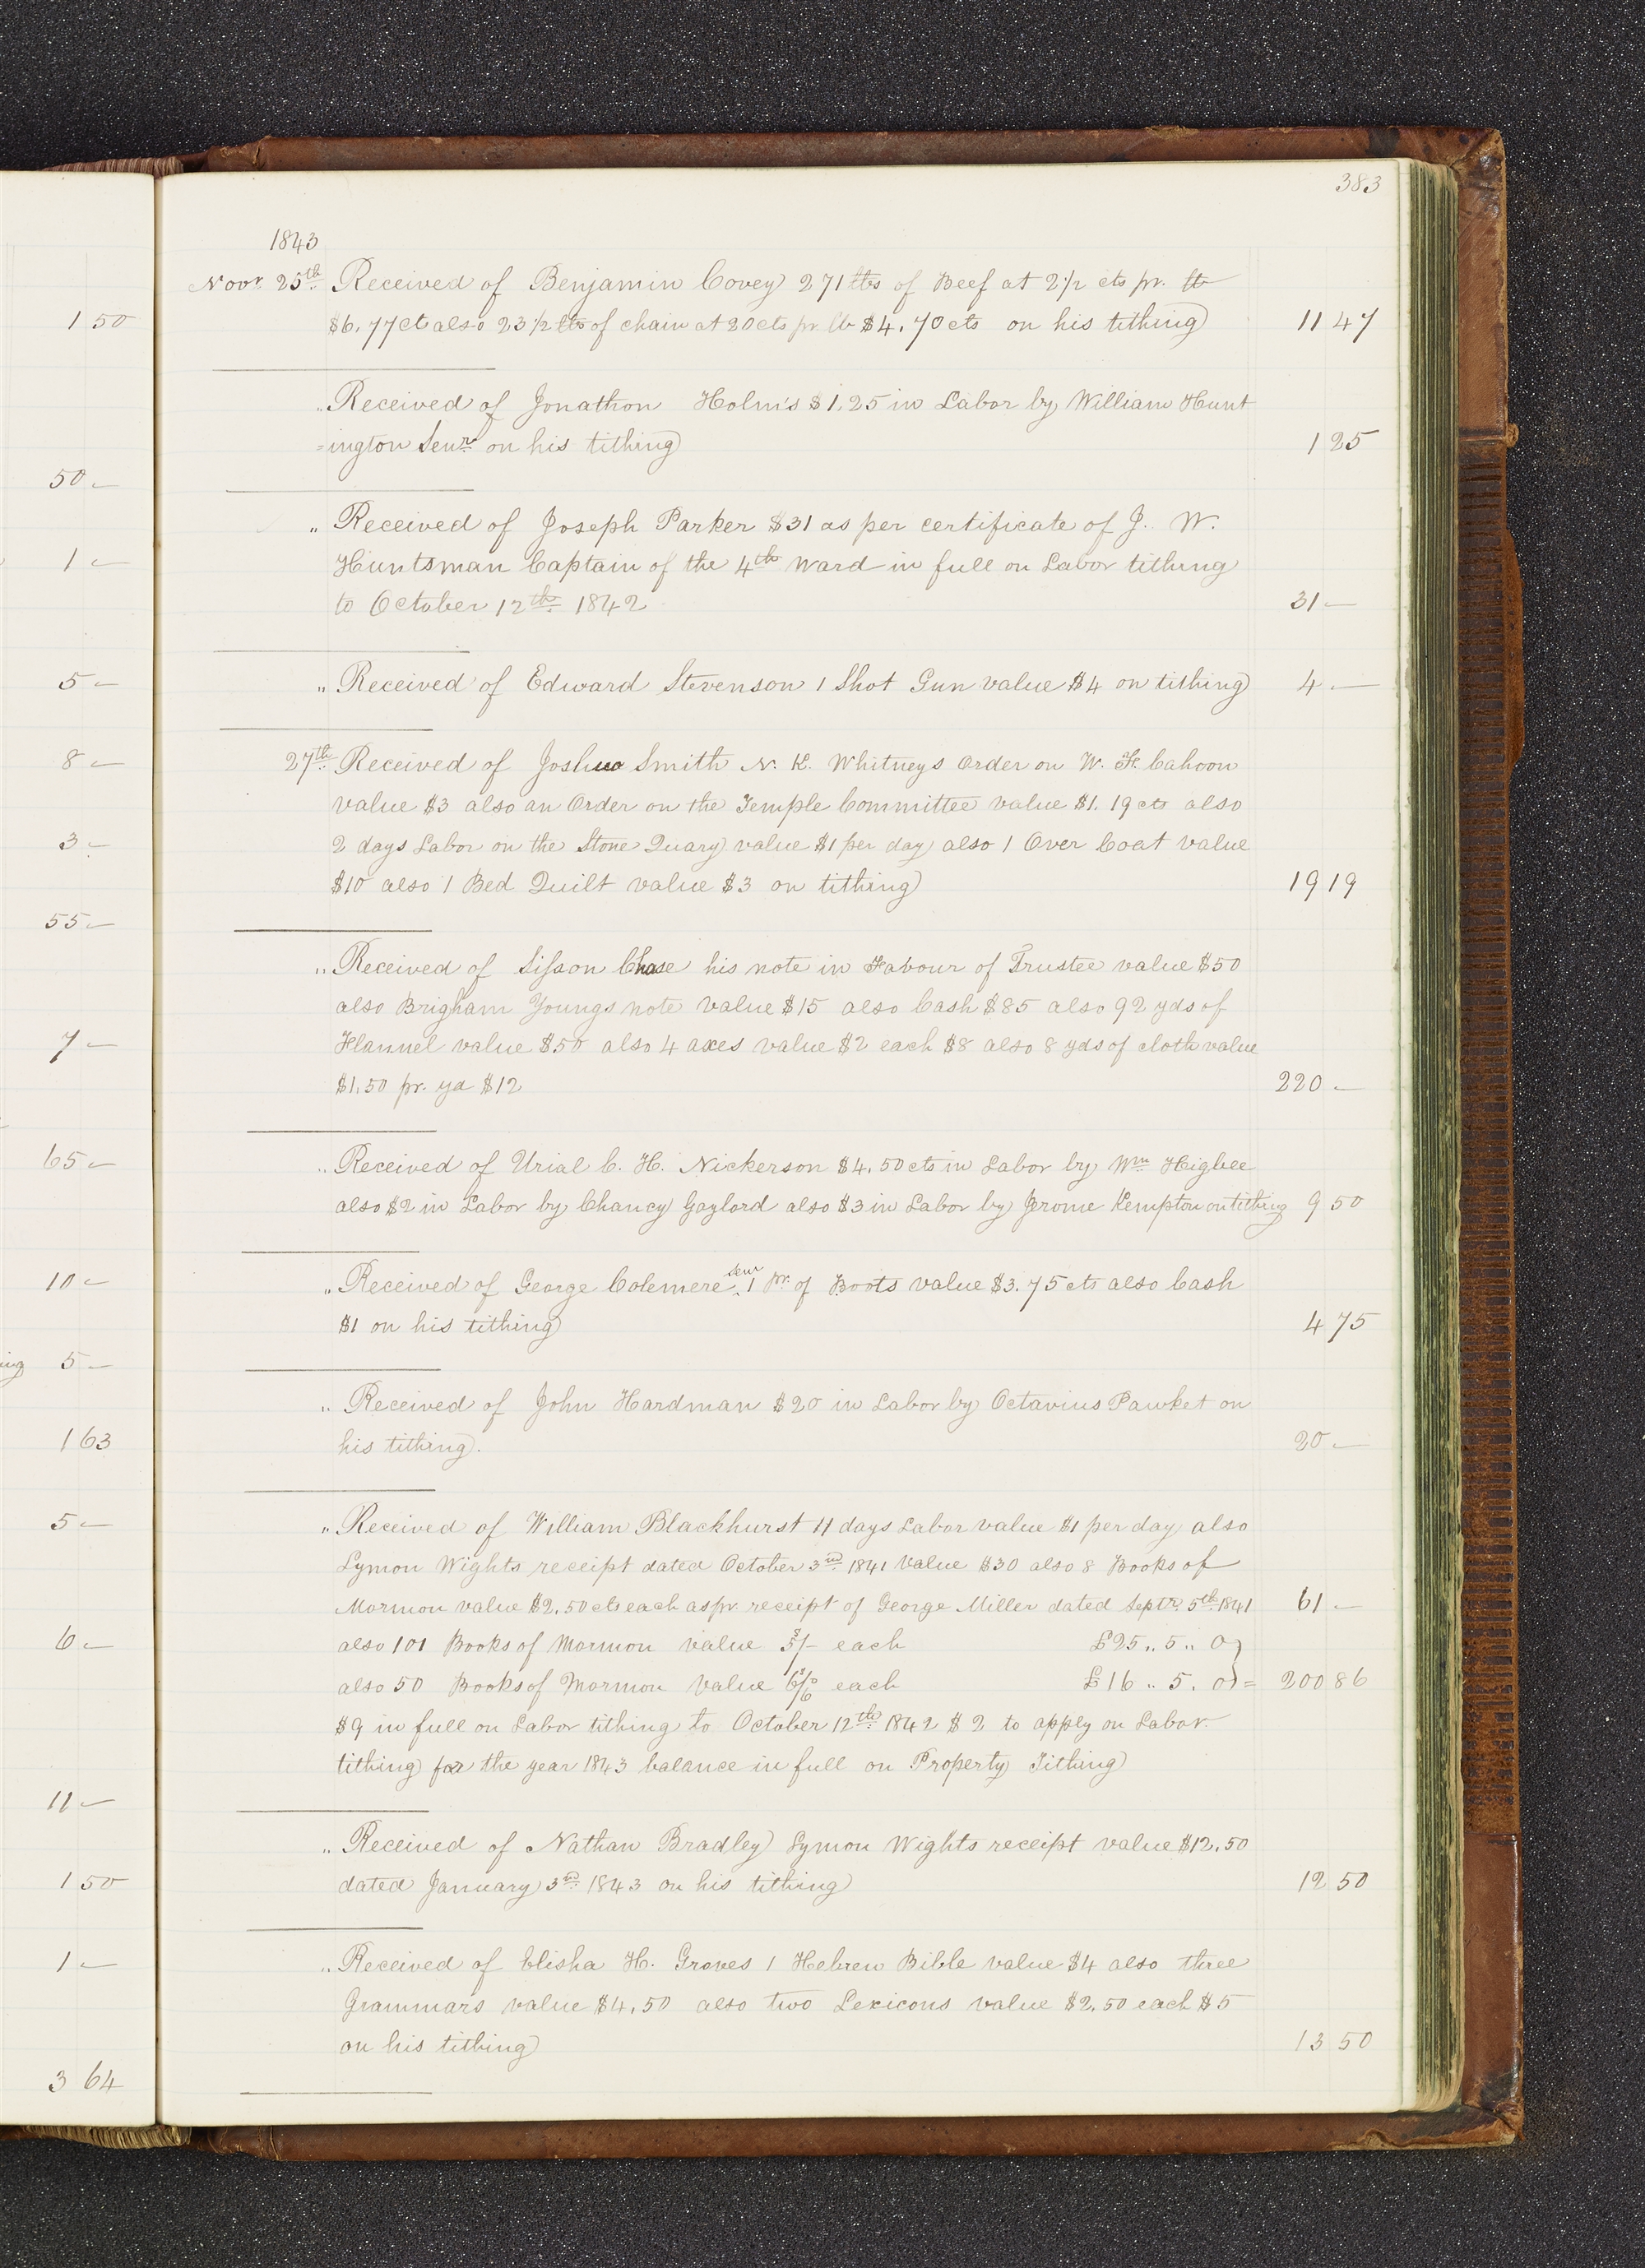 383
1843
Novr. 25th. Received of Benjamin Covey 271 lbs of Beef at 2 1/2 cts pr. lb
1 50
$6.77 cts also 23 1/2 lbs of chain at 20 cts pr lb $4.70 cts on his tithing 11 47
" Received of Jonathon Holm's $1.25 in Labor by William Hunt
=ington Senr. on his tithing 1 25
50 –
" Received of Joseph Parker $31 as per certificate of J. W.
1 – Huntsman Captain of the 4th Ward in full on Labor tithing
to October 12th. 1842 31 –
5 – " Received of Edward Stevenson 1 Shot Gun value $4 on tithing 4 –
8 – 27th. Received of Joshua Smith N. K. Whitneys Order on W. F. Cahoon
value $3 also an Order on the Temple Committee value $1.19 cts also
3 – 2 days Labor on the Stone Quary value $1 per day also 1 Over Coat value
$10 also 1 Bed Quilt value $3 on tithing 19 19
55 –
" Received of Sisson Chase his note in Favour of Trustee value $50
also Brigham Youngs note value $15 also Cash $85 also 92 yds of
7 – Flannel value $50 also 4 axes value $2 each $8 also 8 yds of cloth value
$1.50 pr. yd $12 220 –
65 – " Received of Urial C. H. Nickerson $4.50 cts in Labor by Wm. Higbee
also $2 in Labor by Chancy Gaylord also $3 in Labor by Jerome Kempton on tithing 9 50
10 – " Received of George Colemere Senr 1 Pr. of Boots value $3.75 cts also Cash
$1 on his tithing 4 75
ing 5 –
" Received of John Hardman $20 in Labor by Octavius Pawket on
1 63 his tithing. 20 –
5 – " Received of William Blackhurst 11 days Labor value $1 per day also
Lymon Wights receipt dated October 3rd. 1841 value $30 also 8 Books of
Mormon value $2.50 cts each as pr. receipt of George Miller dated Septr. 5th. 1841 61 –
6 – also 101 Books of Mormon value 5/– each £25 " 5 " 0 }
also 50 Books of Mormon value 6/6 each £16 " 5. 0 } = 200 86
$9 in full on Labor tithing to October 12th. 1842 $2 to apply on Labor
tithing for the year 1843 balance in full on Property Tithing
11 –
" Received of Nathan Bradley Lymon Wights receipt value $12.50
1 50 dated January 3rd. 1843 on his tithing 12 50
1 – " Received of Elisha H. Groves 1 Hebrew Bible value $4 also three
Grammars value $4.50 also two Lexicons value $2.50 each $5
on his tithing 13 50
3 64